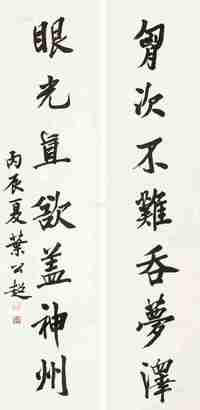 胷次不難吞夢澤
眼光直欲蓋神州
丙辰夏葉公超